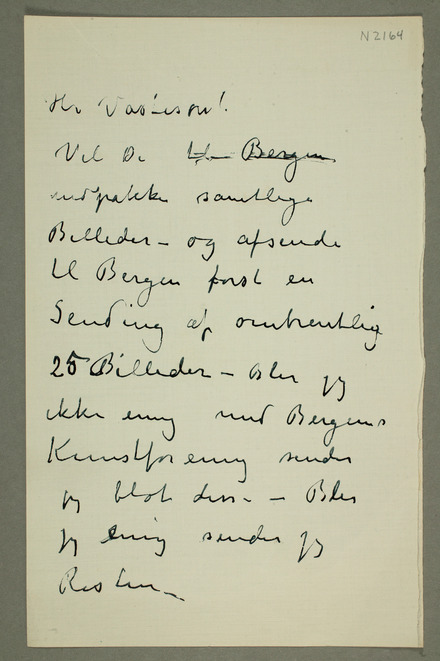 N 2164
Hr Vas'ison!
Vil De til Bergen
indpakke samtlige
Billeder – og afsende
til Bergen først en
Sending af omtrentlig
25 Billeder – Blir jeg
ikke enig med Bergens
Kunstforening sender
jeg blot disse – Blir
jeg enig sender jeg
Resten –